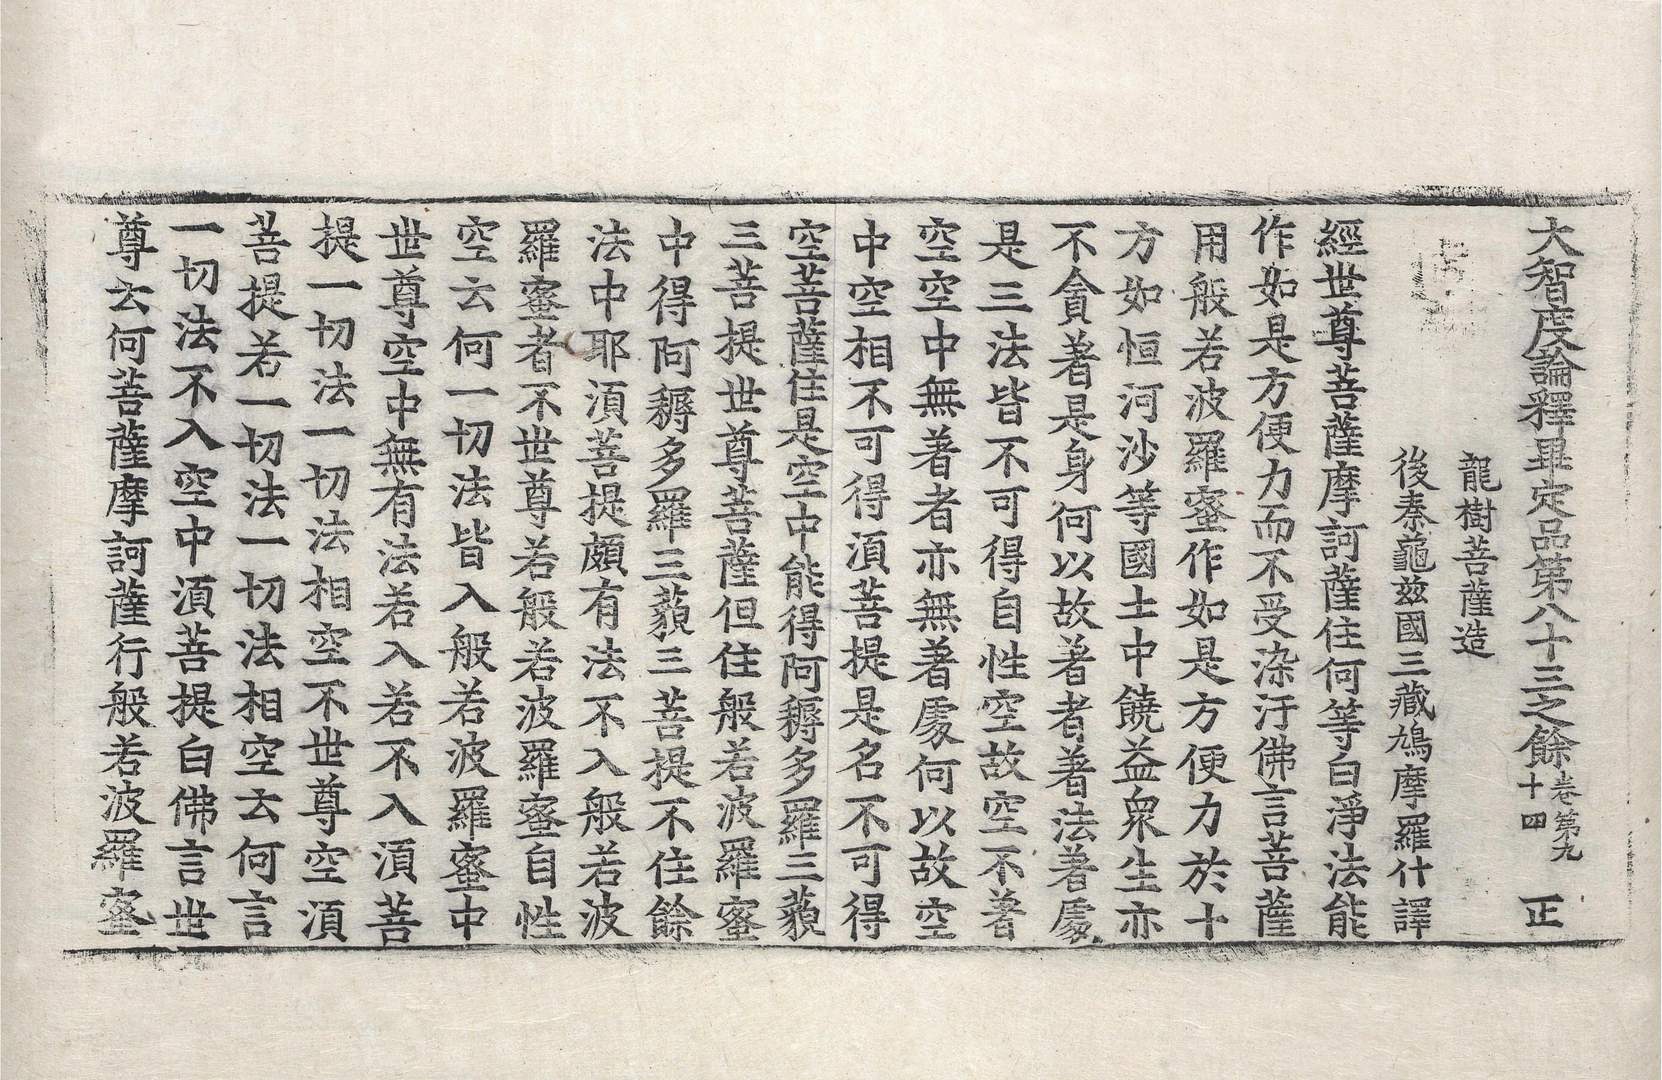 大智度論釋畢定品第八十三之餘卷第九十四 正
龍樹菩薩造
後秦龜茲國三藏鳩摩羅什譯
經世尊菩薩摩訶薩住何等白淨法能
作如是方便力而不受染汙佛言菩薩
用般若波羅蜜作如是方便力於十
方如恒河沙等國土中饒益衆生亦
不貪著是身何以故著者著法著處
是三法皆不可得自性空故空不著
空空中無著者亦無著處何以故空
中空相不可得須菩提是名不可得
空菩薩住是空中能得阿耨多羅三藐
三菩提世尊菩薩但住般若波羅蜜
中得阿耨多羅三藐三菩提不住餘
法中耶須菩提頗有法不入般若波
羅蜜者不世尊若般若波羅蜜自性
空云何一切法皆入般若波羅蜜中
世尊空中無有法若入若不入須菩
提一切法一切法相空不世尊空須
菩提若一切法一切法相空云何言
一切法不入空中須菩提白佛言世
尊云何菩薩摩訶薩行般若波羅蜜